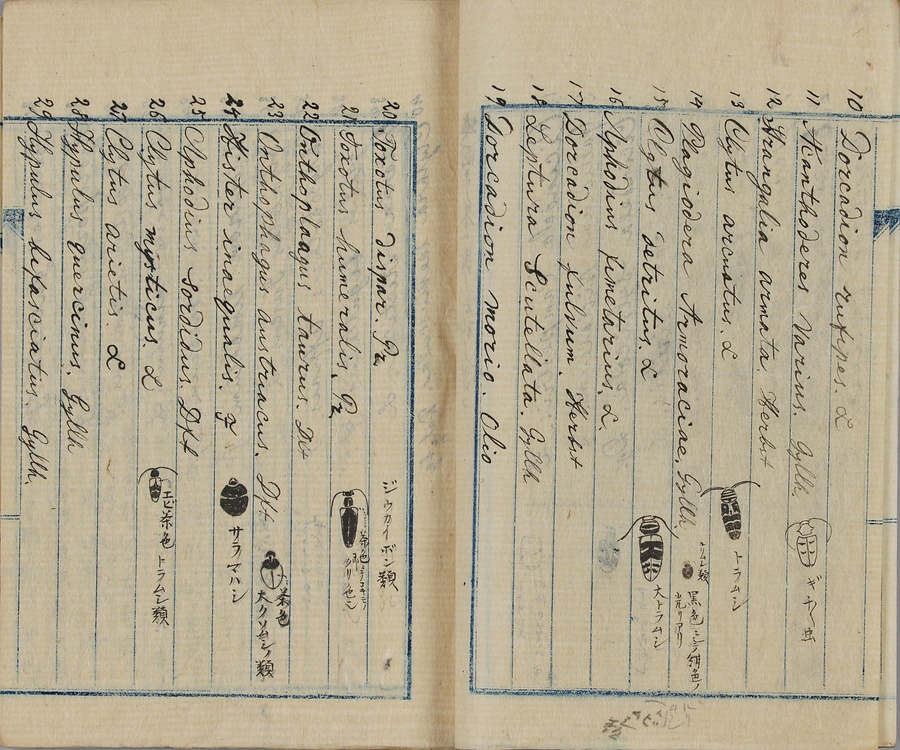 10 Dorcadion rufipes. L
11 Xanthoderes Varius. Gyllh.
12 Strangalia armata. Herbst
13 Clytus arcuatus. L
トラムシ
14 Plagiodera Armoraciae. Gyllh
黒色ニシテ紺色ノ
光リアリ
15 Clytus detritus. L
大トラムシ
16 Aphodius fimetarius. L.
17 Dorcadion fulvum. Herbst
18 Leptura Scutellata. Gyllh
19 Dorcadion Morio. Olio
20 Toxotus dispar. Pz
ジウカイボン類
21 Toxotus humeralis. Pz
茶色
22 Onthophagus taurus. Dft
23 Onthophagus austriacus. Dft
茶色
大クソムシノ類
24 Hister inaequalis. F
サラマハシ
25 Aphodius sordidus. Dft
26 Clytus mysticus. L
エビ茶色 トラムシ類
27 Clytus arietis. L
28 Hypulus quercinus. Gyllh
29 Hypulus bifasciatus. Gyllh.